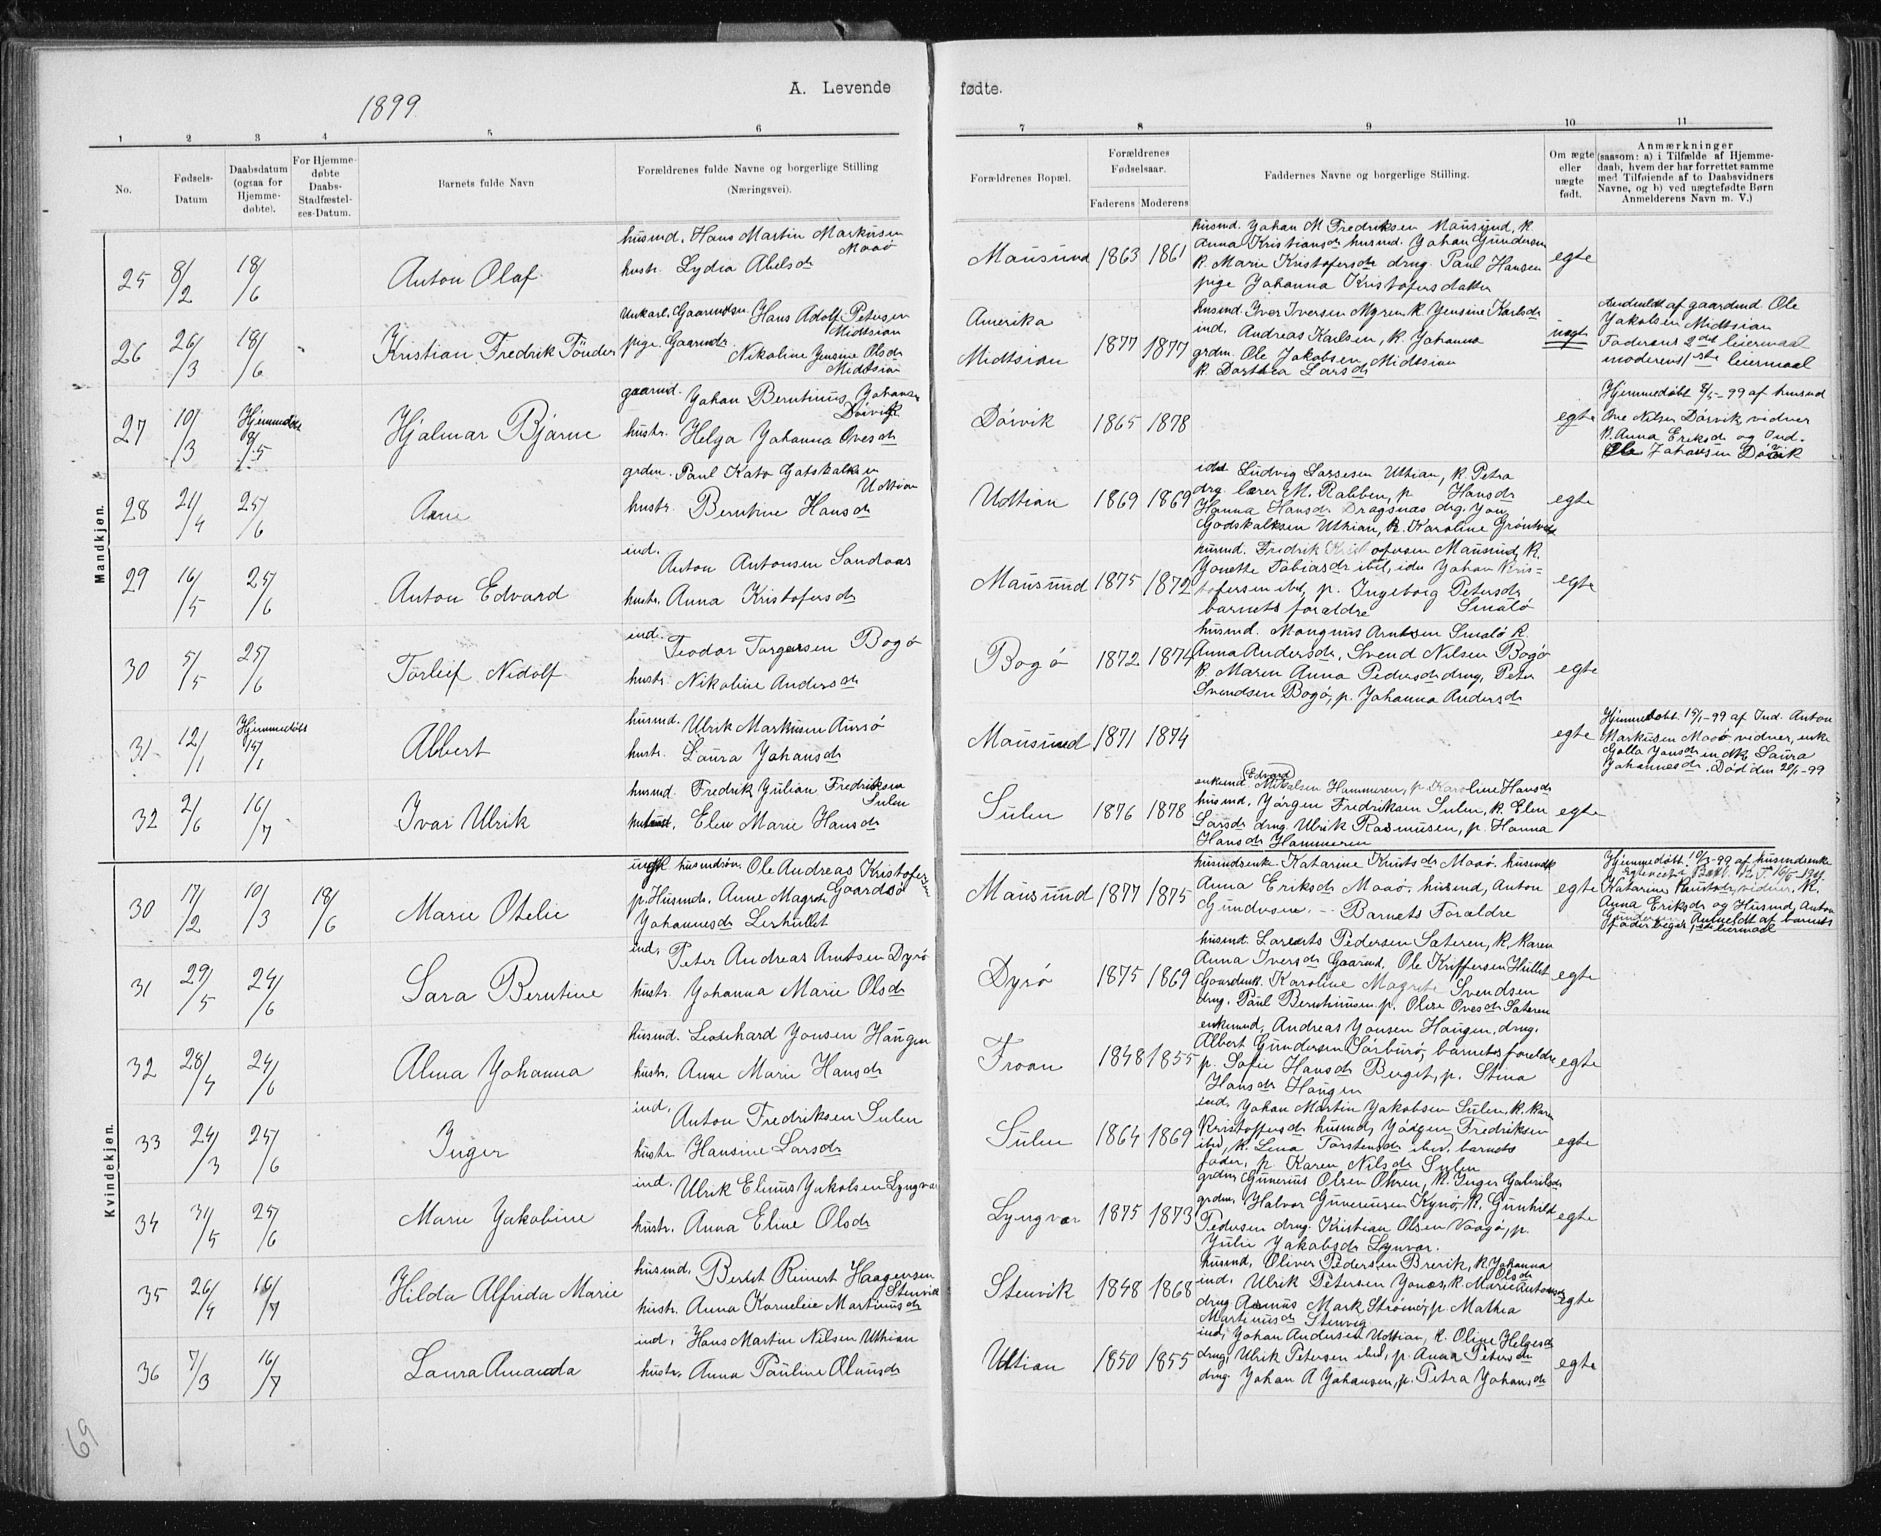 1899
A. Levende fødte.
1 2 3 4 5 6 7 8 9 10 11
No.
Fødsels-Datum
Daabsdatum (ogsaa for Hjemme-døbte).
For Hjemme-døbte Daabs-Stadfæstel-ses-Datum.
Barnets fulde Navn
Forældrenes fulde Navne og borgerlige Stilling (Næringsvei).
Forældrenes Bopæl.
Forældrenes Fødselsaar.
Faderens Moderens
Faddernes Navne og borgerlige Stilling.
Om ægte eller uægte født.
Anmærkninger (saasom: a) i Tilfælde af Hjemme-daab, hvem der har forrettet samme med Tilføiende af to Daabsvidners Navne, og b) ved uægtefødte Børn Anmelderens Navn m. V.)
Mandkjøn.
25 8/2 18/6 Anton Olaf
husmd. Hans Martin Markusen
Maaø
hustr. Lydia Abelsdr
Mausund 1863 1861
husmd. Johan M Fredriksen Mausund, K.
Anna Kristiansdr husmd. Johan Gundersen
K. Marie Kristofersdr drng. Paul Hansen
pige Johanna Kristofersdatter
egte
26 26/3 18/6 Kristian Fredrik Tönder
Unkarl. Gaardmdsn. Hans Adolf Petersen
Midtsian
pige. Gaarmdr. Nikoline Jensine Olsdr
Midtsian
Amerika
Midtsian 1877 1877
husmd. Iver Iversen Myren K. Jensine Karlsdr
ind. Andreas Karlsen, K. Johanna
grdm. Ole Jakobsen Midtsian
K. Dorthea Larsdr
uægte
Anmeldt af gaardmd Ole
Jakobsen Midtsian
Faderens 2det leiermaal
moderens 1ste leiermaal
27 10/3 Hjemmedøbt 8/5 Hjalmar Bjarne
gaarmd. Johan Berntinus Johansen
Dörvik
hustr. Helga Johanna Ovesdr
Dörvik 1865 1878
egte
Hjemmedøbt 8/5-99 af husmd
Ove Nilsen Dörvik, vidner
K. Anna Eriksdr og Ind.
Ole Johansen Dörvik
28 21/4 25/6 Arne
grdm. Paul Kato Gotskalksen
Udtian
hustr. Berntine Hansdr
Udtian 1869 1869
ind Ludvig Larsesen Uttian, K. Petra
drg. lærer M. Rabben, p Hansdr
Hanna Hansdr Dragsnas drg. Jon
Godskalksen Uthian, K. Karoline Gröntvedt
egte
29 16/5 25/6 Anton Edvard
ind. Anton Antonsen Sandaas
hustr. Anna Kristofersdr
Mausund 1875 1872
husmd. Fredrik Kristofersen Mausund, K.
Jonette Tobiasdr ibd, ide Johan Kris-
tofersen ibd, p. Ingeborg Petersdr
barnets foraldre Smalö
egte
30 5/5 25/6 Törleif Nidolf
ind. Teodor Torgersen Bogø
hustr. Nikoline Andersdr
Bogö 1872 1874
husmd. Mangnus Arntsen Smalö K.
Anna Andersdr, Svend Nilsen Bogö
K. Maren Anna Pedersdr drng, Peter
Svendsen Bogö, p. Johanna Andersdr
egte
31 12/1 Hjemmedøbt 15/1 Albert
husmd. Ulrik Markusen Aursö
hustr. Laura Johansdr
Mausund 1871 1874
egte
Hjemmedøbt 15/1-99 af Ind. Anton
Markusen Maaö vidner, enke
Golla Jonsdr indk Laura
Johannesdr. Död den 20/1-99
32 2/6 16/7 Ivar Ulrik
husmd. Fredrik Julian Fredriksen
Sulen
hustr. Elen Marie Hansdr
Sulen 1876 1878
enkemd. Edvard Mikalsen Hammeren, p. Karoline Hansdr
husmd. Jörgen Fredriksen Sulen, K. Elen
Larsdr drng. Ulrik Rasmusen, p. Hanna
Hansdr Hammeren
egte
Kvindekjøn.
30 17/2 19/3 18/6 Marie Otelie
ungk husmdsøn. Ole Andreas Kristofersen
p. Husmdr. Anne Magrete Gaardsö
Johannesdr Lerhullet
Mausund 1877 1875
husmdsenke. Katarine Knutsdr Maaö. husmdsk
Anna Eriksdr Maaö. husmd, Anton
Gundersen - Barnets Foraldre
egte
Hjemmedøbt 19/3-99 af husmdsenke
Katarine Knutsdr, vidner, K.
Anna Eriksdr og Husmd, Anton
Gundersen, Anmeldt af barnets
fader begges 1ste leiermaal
31 29/5 24/6 Sara Berntine
ind. Peter Andreas Arntsen Dyrö
hustr. Johanna Marie Olsdr
Dyrø 1875 1869
husmd. Laurits Pedersen Sateren, K. Karen
Anna Iversdr Gaarmd. Ole Kriffersen Hullet
Gaardenk. Karoline Magrete Svendsen
drng. Paul Bernhinusen p. Oline Ovesdr Sateren
egte
32 28/4 24/6 Alma Johanna
husmd. Leonhard Jonsen Haugen
hustr. Anne Marie Hansdr
Froan 1848 1855
enkemd, Andreas Jonsen Haugen, drng.
Albert Gundersen Sörburö, barnets foreldre
p. Sofie Hansdr Berget, p. Stina
Hansdr Haugen
egte
33 24/3 25/6 Inger
ind, Anton Fredriksen Sulen
hustr. Hansine Larsdr
Sulen 1864 1869
ind, Johan Martin Jakobsen Sulen, K. Karen
Kristoffersdr husmd, Jörgen Fredriksen
ibd, K. Lena Torstensdr ibid. barnets
fader, p. Karen Nilsdr Sulen
egte
34 31/5 25/6 Marie Jakobine
ind. Ulrik Elinus Jakobsen Lyngvær
hustr. Anna Eline Olsdr
Lyngvær 1875 1873
grdm, Gunerius Olsen Ohren, K. Inger Gabrielsdr
grdm, Halvor Gunerussen Kynö, K. Gunhild
Pedersen drng. Kristian Olsen Vaagö, p.
Julie Jakobsdr Lynvær.
egte
35 26/4 16/7 Hilda Alfrida Marie
husmd, Berndt Reinert Haagensen
Stenvik
hustr. Anna Korneleie Martinusdr
Stenvik 1848 1868
husmd, Oliver Pedersen Brevik, K. Johanna
Olsdr
ind, Ulrik Petersen Jonas, K. Marie Antonsen
drng Mark Strömö, p. Mathea
Martinusdr Stenvig
egte
36 7/3 16/7 Laura Amanda
ind, Hans Martin Nilsen Uthian
hustr. Anna Pauline Olausdr
Uttian 1850 1855
ind, Johan Andersen Udttian, K. Oline Helgesdr
drng, Ulrik Petersen ibid, p. Anna Petersdr
drng. Johan A Johansen, p. Petra Johansdr
egte
69